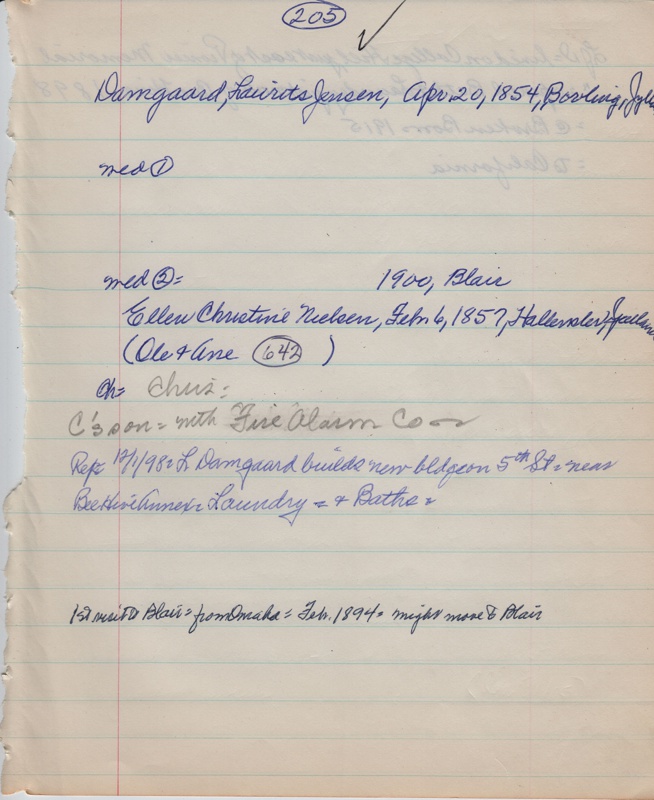 205
Damgaard, Laurits Jensen, Apr. 20, 1854, Bovling, Jyll
med ①
med ② = 1900, Blair
Ellen Christine Nielsen, Feb. 6, 1857,
(Ole & Ane 642 )
ch = Chris =
C's son = with Fire Alarm Co
Rep: 12/1/98 = L Damgaard builds new bldg on 5th St = near
Beehive Annex = Laundry = & Baths =
1st visit to Blair = from Omaha = Feb. 1894 = might move to Blair
= Broken Bow = 1915
= California